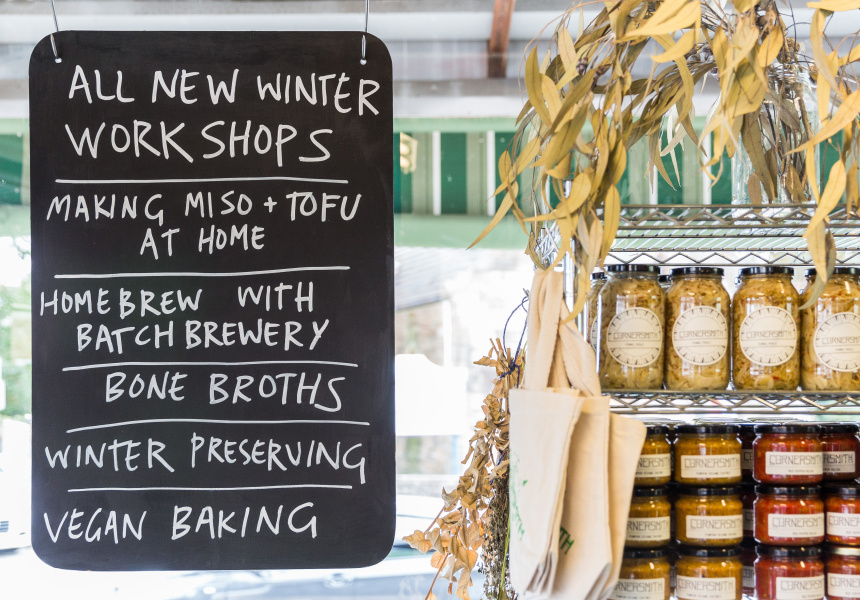 ALL NEW WINTER
WORKSHOPS
MAKING MISO + TOFU
AT HOME
HOMEBREW WITH
BATCH BREWERY
BONE BROTHS
WINTER PRESERVING
VEGAN BAKING
CORNERSMITH
CORNERSMITH
CORNERSMITH
CORNERSMITH
CORNERSMITH
CORNERSMITH
CORNERSMITH
CORNERSMITH
CORNERSMITH
CORNERSMITH
CORNERSMITH
CORNERSMITH
CORNERSMITH